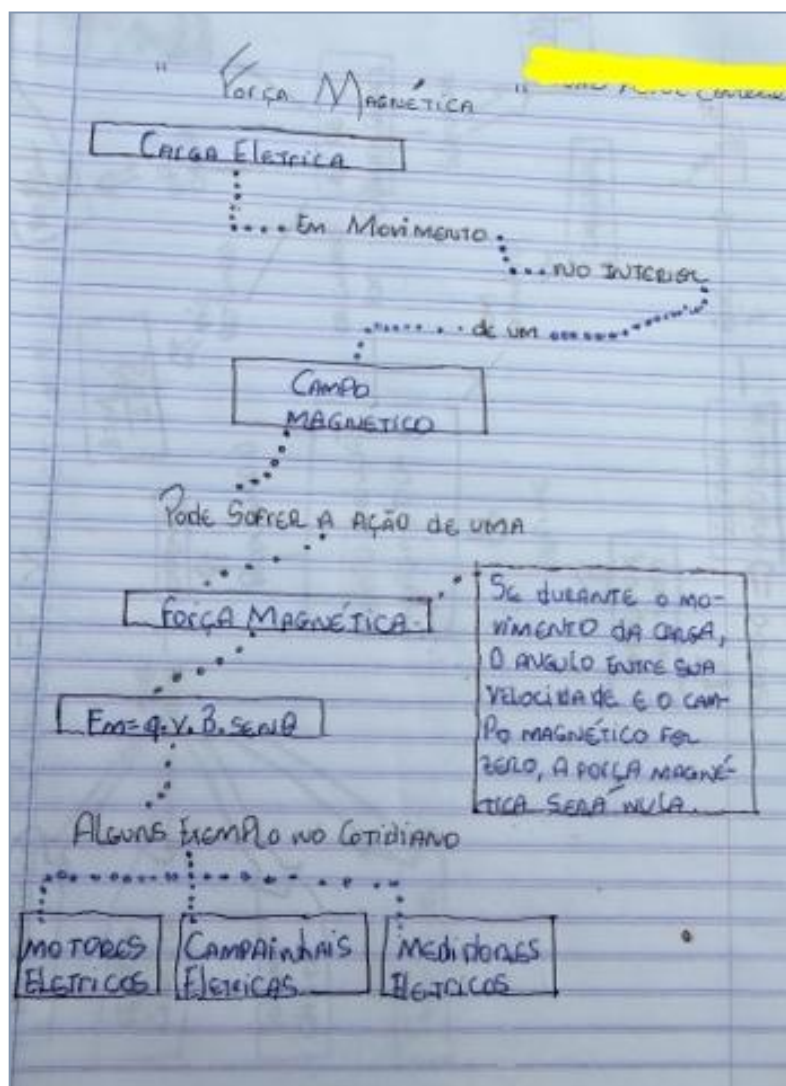 " Força Magnética "
Carga Eletrica
Em Movimento
no interior
de um
Campo
Magnetico
Pode Sofrer a ação de uma
Força Magnética
Se durante o mo-
vimento da carga,
o angulo entre sua
velocidade e o cam-
po magnético for
zero, a força magné-
tica será nula.
Em=q.v.B.senθ
Alguns Exemplo no Cotidiano
Motores
Eletricos
Campainhais
Eletricas
Medidores
Eletricos